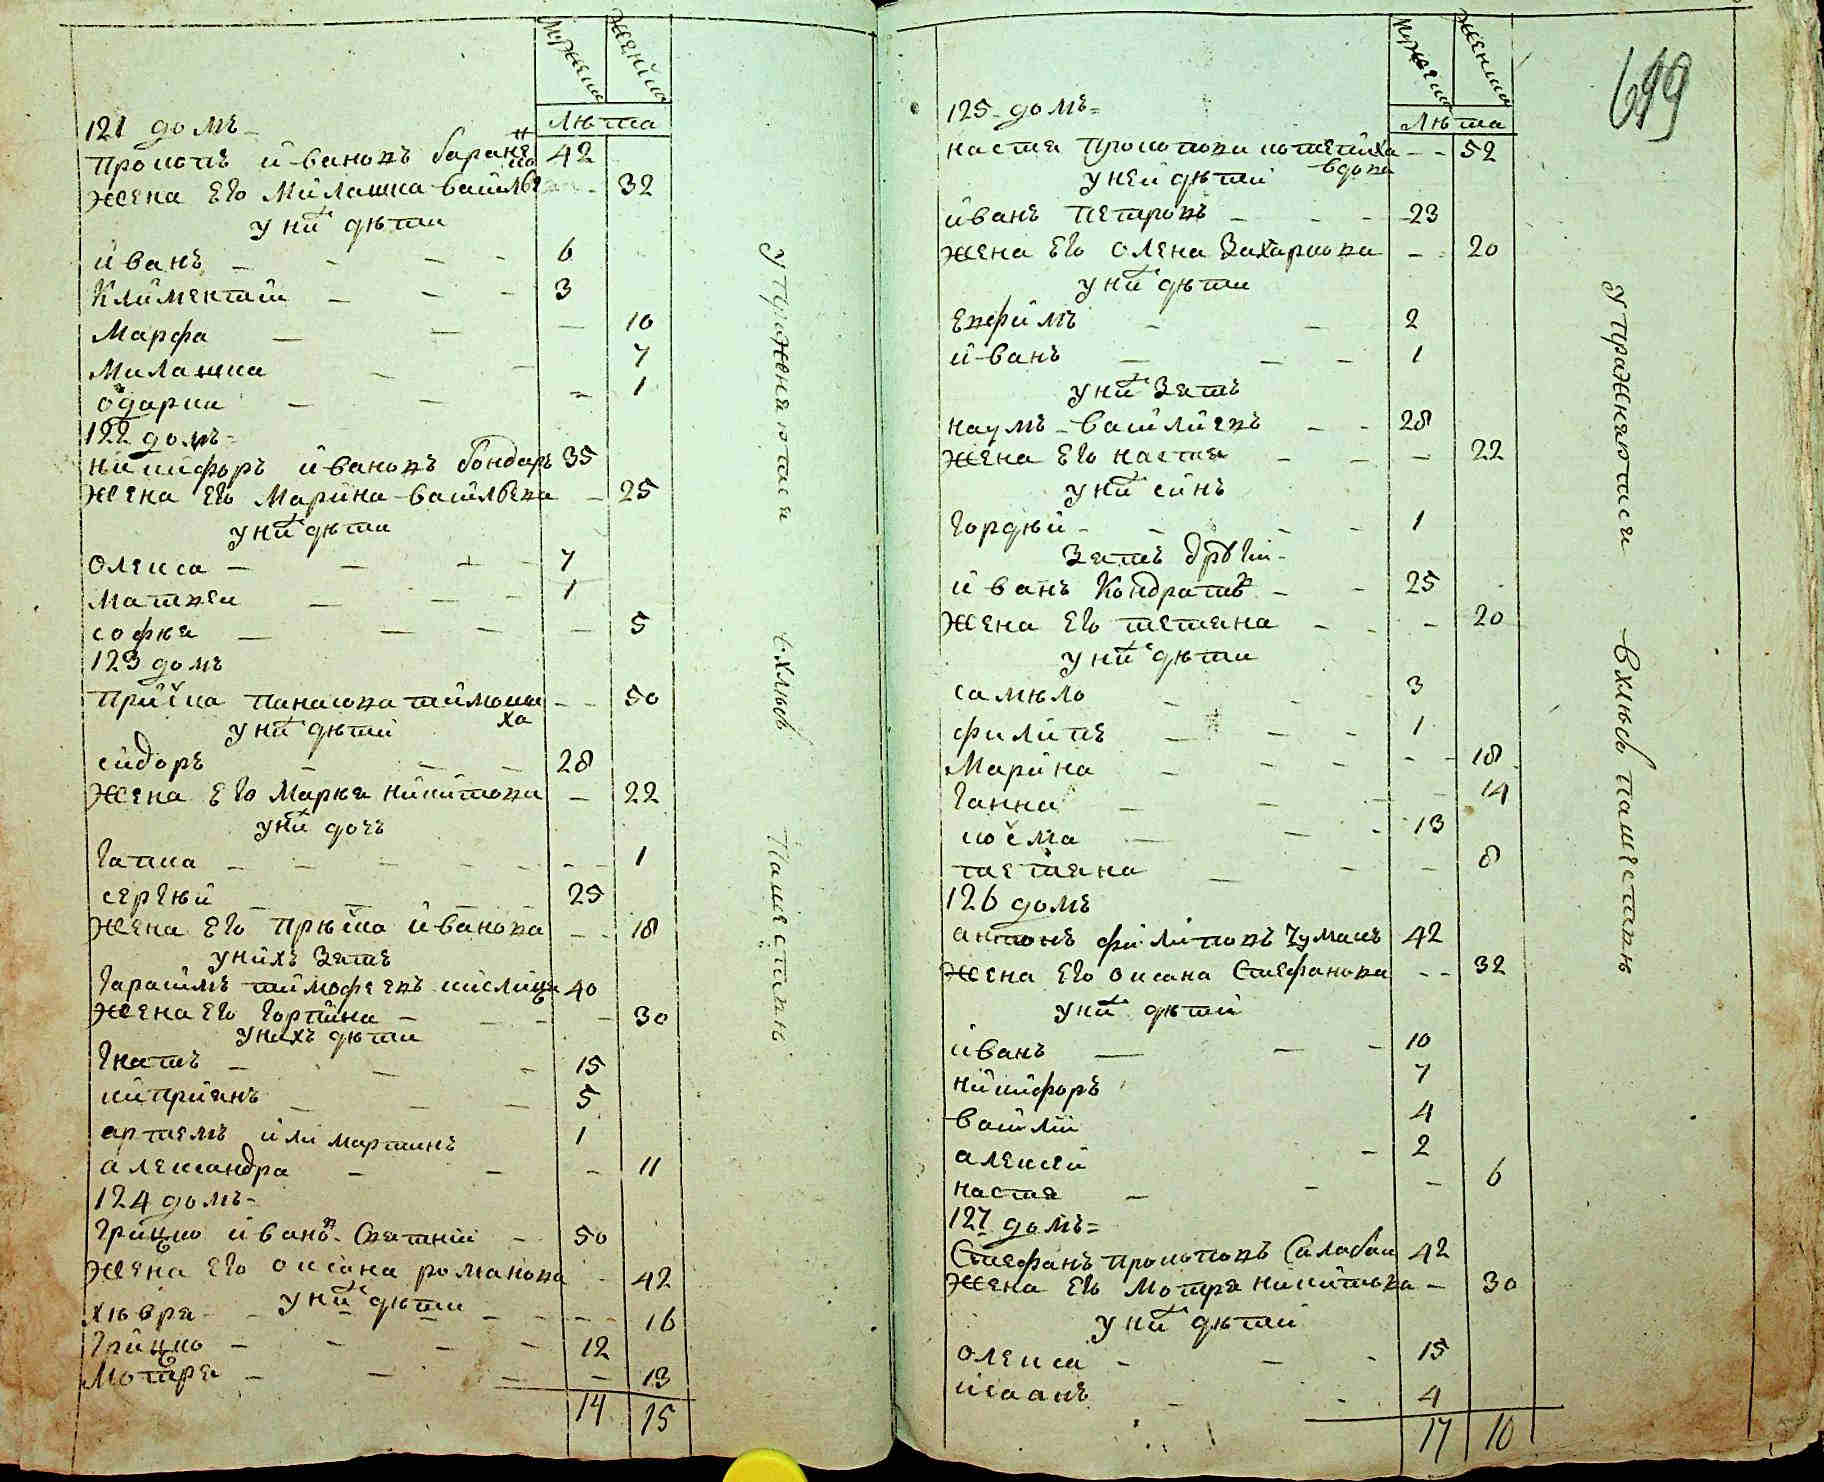 Мужеска
Женска
лѣта
121 домъ
Прокопъ ивановъ баранѣнко 42
жена Его Милашка василѣва 32
у нихъ дѣти
иванъ 6
Климентий 3
Марфа 10
Милашка 7
одарка 1
122 домъ
никифоръ ивановъ бондаръ 35
жена Его Марина василѣва 25
у нихъ дѣти
олекса 7
матвеи 1
софѣя 5
123 домъ
Приска Панасова тимошиха 50
у нихъ дѣти
сидоръ 28
жена Его Маря никитова 22
у нихъ дочъ
гапка 1
сергѣй 25
жена Его Прѣска иванова 18
у нихъ зять
гарасимъ тимофеевъ кислица 40
жена Его горпина 30
у нихъ дѣти
гнатъ 15
киприянъ 5
артемъ или мартинъ 1
александра 11
124 домъ
грицко ивановъ Святний 50
жена Его оксана романова 42
у нихъ дѣти
хѣвря 16
грицко 12
мотря 13
14 15
упражняются вхлѣбо пашествѣ
699
Мужеска
Женска
лѣта
125 домъ
настя Прокопова котеиха вдова 52
у неи дѣти
иванъ Петровъ 23
жена Его олена Захаркова 20
у нихъ дѣти
Евфимъ 2
иванъ 1
у нихъ зятъ
наумъ василиевъ 28
жена Его настя 22
у нихъ синъ
гордѣй 1
зятъ другий
иванъ Кондратовъ 25
жена Его тетяна 20
у нихъ дѣти
самѣло 3
филипъ 1
Марина 18
ганна 14
косма 13
тетяна 8
126 домъ
антонъ филиповъ Чумакъ 42
жена Его оксана Стефанова 32
у нихъ дѣти
иванъ 10
никифоръ 7
василий 4
алексей 2
настя 6
127 домъ
Стефанъ прокоповъ Салабаи 42
жена Его мотря никитова 30
у нихъ дѣти
олекса 15
исаакъ 4
17 10
упражняются вхлѣбо пашествѣ